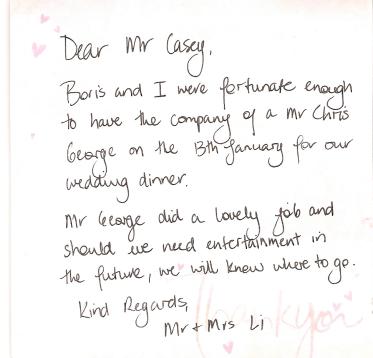 Dear Mr Casey,
Boris and I were fortunate enough
to have the company of a Mr Chris
George on the 13th January for our
wedding dinner.
Mr George did a lovely job and
should we need entertainment in
the future, we will know where to go.
Kind Regards,
Mr + Mrs Li
thankyou